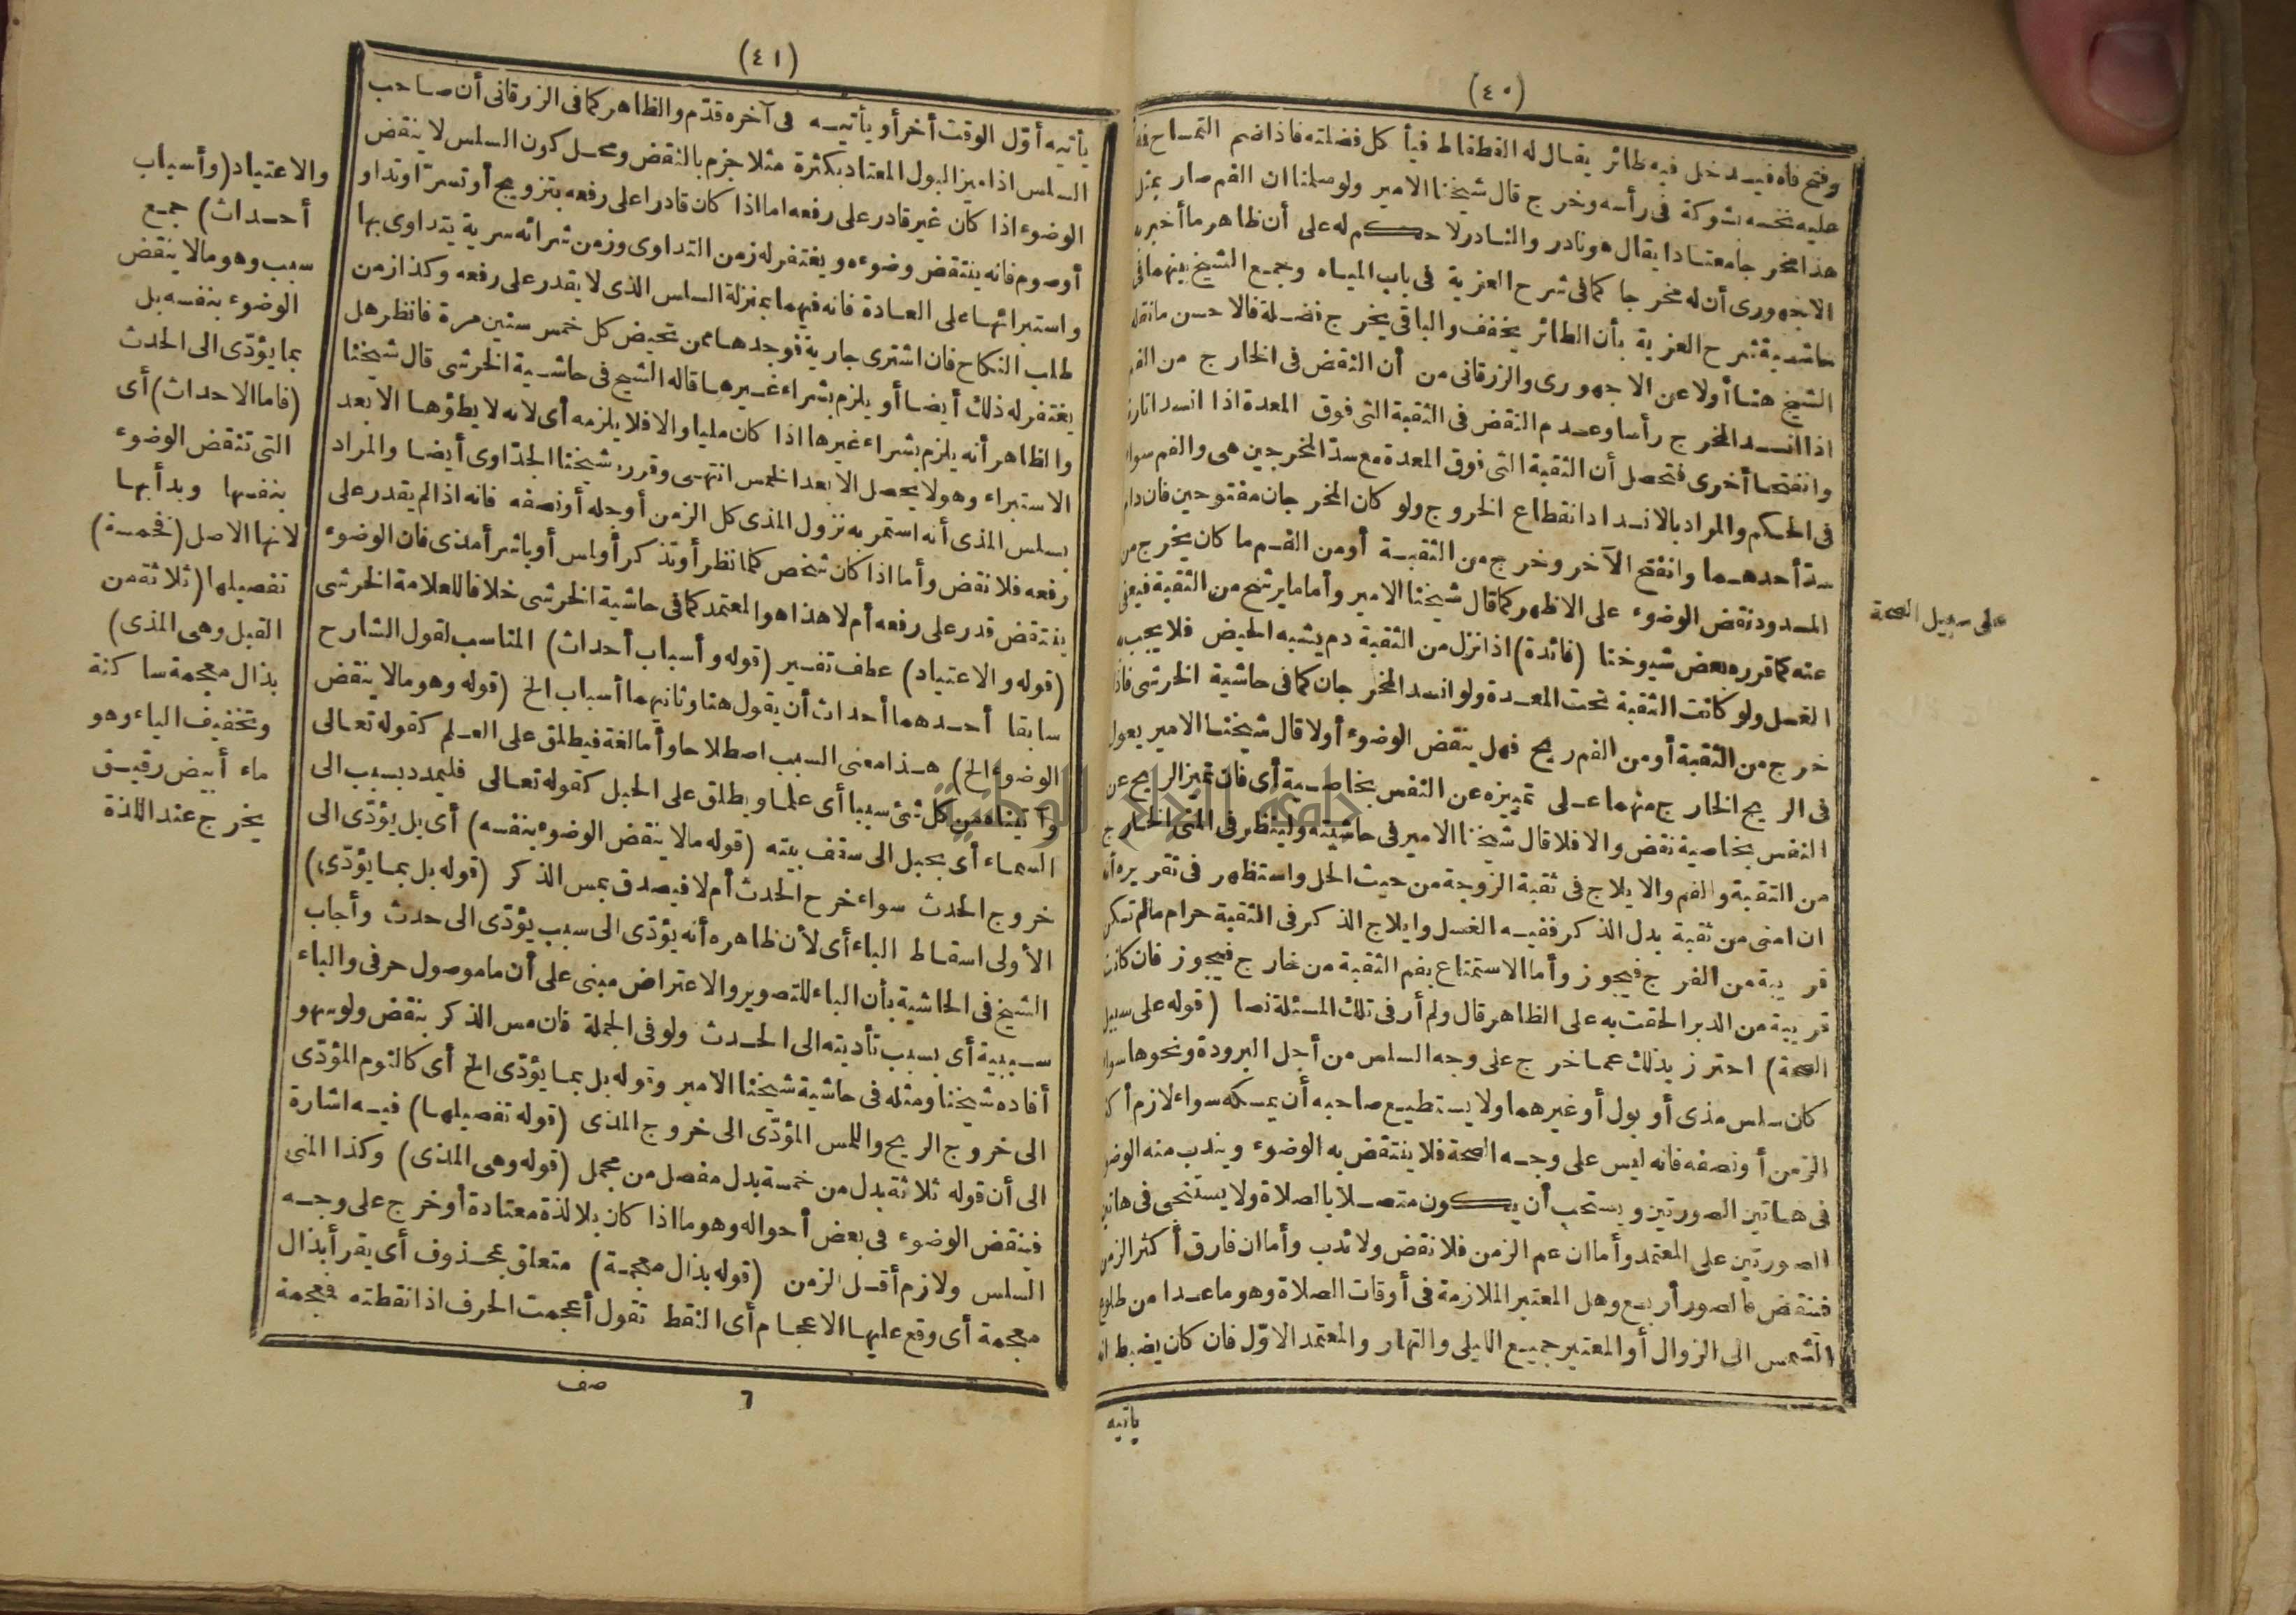 (٤٠)
وفتح فاه فيدخل فيه طائر يقال له القطقاط فيأكل كل فضلته فاذا ضم التمساح فاه
عليه نخسه بشوكة فى رأسه وخرج قال شيخنا الامير ولو سلمنا ان الفم صار بمنزلة
هذا مخرجا معتادا يقال هو نادر والنادر لا حكم له على أن ظاهر ما أخبر به
الاجهورى أن له مخرجا كما فى شرح العزية فى باب المياه وجمع الشيخ بينهما فى
حاشية شرح العزية بأن الطائر يخفف والباقى يخرج فضلة فالاحسن ما نقله
الشيخ هنا أولا عن الاجهورى والزرقانى من أن النقض فى الخارج من الفم
اذا انسد المخرج رأسا وعدم النقض فى الثقبة التى فوق المعدة اذا انسدا تارة
وانفتحا أخرى فتحصل أن الثقبة التى فوق المعدة مع سد المخرجين هى والفم سواء
فى الحكم والمراد بالانسداد انقطاع الخروج ولو كان المخرجان مفتوحين فان دام
سد أحدهما وانفتح الآخر وخرج من الثقبة أو من الفم ما كان يخرج من
المسدود نقض الوضوء على الاظهر كما قال شيخنا الامير وأما ما يرشح من الثقبة فيعفى
عنه كما قرره بعض شيوخنا (فائدة) اذا نزل من الثقبة دم يشبه الحيض فلا يجب
الغسل ولو كانت الثقبة تحت المعدة ولو انسد المخرجان كما فى حاشية الخرشى فاذا
خرج من الثقبة أو من الفم ريح فهل ينقض الوضوء أولا قال شيخنا الامير يعول
فى الريح الخارج منهما على تمييزه عن النفس بخاصية أى فان تميز الريح عن
النفس بخاصية نقض والا فلا قال شيخنا الامير فى حاشيته ولينظر فى المنى الخارج
من الثقبة والفم والايلاج فى ثقبة الزوجة من حيث الحل واستظهر فى تقريره أنه
ان امنى من ثقبة بدل الذكر ففيه الغسل وايلاج الذكر فى الثقبة حرام مالم تكن
قريبة من الفرج فيجوز وأما الاستمتاع بفم الثقبة من خارج فيجوز فان كانت
قريبة من الدبر الحقت به على الظاهر قال ولم أر فى تلك المسئلة نصا (قوله على سبيل
الصحة) احترز بذلك عما خرج على وجه السلس من أجل البرودة ونحوها سواء
كان سلس مذى أو بول أو غيرهما ولا يستطيع صاحبه أن يمسكه سواء لازم أكثر
الزمن أو نصفه فانه ليس على وجه الصحة فلا ينتقض به الوضوء ويندب منه الوضوء
فى هاتين الصورتين ويستحب أن يكون متصلا بالصلاة ولا يستنجى فى هاتين
الصورتين على المعتمد وأما ان عم الزمن فلا نقض ولا ندب وأما ان فارق أكثر الزمن
فينقض فالصور أربع وهل المعتبر الملازمة فى أوقات الصلاة وهو ما عدا من طلوع
الشمس الى الزوال أو المعتبر جميع الليلى والنهار والمعتمد الاوّل فان كان يضبط انه
يأتيه
على سبيل الصحة
(٤١)
يأتيه أوّل الوقت أخر أو يأتيه فى آخره قدّم والظاهر كما فى الزرقانى أن صاحب
السلس اذا ميز البول المعتاد بكثرة مثلا جزم بالنقض ومحل كون السلس لا ينقض
الوضوء اذا كان غير قادر على رفعه اما اذا كان قادرا على رفعه بتزويج أو تسرّ او تداو
أوصوم فانه ينتقض وضوءه ويغتفر له زمن التداوى وزمن شرائه سرية يتداوى بها
واستبرائها على العادة فانه فيهما بمنزلة السلس الذى لا يقدر على رفعه وكذا زمن
طلب النكاح فان اشترى جارية فوجدها ممن تحيض كل خمس سنين مرة فانظر هل
يغتفر له ذلك أيضا أو يلزم بشراء غيرها قاله الشيخ فى حاشية الخرشى قال شيخنا
والظاهر أنه يلزم بشراء غيرها اذا كان مليا والا فلا يلزمه أى لانه لا يطؤها الا بعد
الاستبراء وهو لا يحصل الا بعد الخمس انتهى وقرره شيخنا الجدّاوى أيضا والمراد
بسلس المذى أنه استمر به نزول المذى كل الزمن أو جله أو نصفه فانه اذا لم يقدر على
رفعه فلا نقض وأما اذا كان شخص كلما نظر أو تذكر أو لمس أو باشر أمذى فان الوضوء
ينتقض قدر على رفعه أم لا هذا هو المعتمد كما فى حاشية الخرشى خلافا للعلامة الخرشى
(قوله والاعتياد) عطف تفسير (قوله وأسباب أحداث) المناسب لقول الشارح
سابقا أحدهما أحداث أن يقول هنا وثانيهما أسباب الخ (قوله وهو مالا ينقض
الوضوء الخ) هذا معنى السبب اصطلاحا وأما لغة فيطلق على العلم كقوله تعالى
وآتيناه من كل شئ سببا أى علما ويطلق على الحبل كقوله تعالى فليمدد بسبب الى
السماء أى بحبل الى سقف بيته (قوله مالا ينقض الوضوء بنفسه) أى بل يؤدّى الى
خروج الحدث سواء خرج الحدث أم لا فيصدق بمس الذكر (قوله بل بما يؤدّى)
الأولى اسقاط الباء أى لأن ظاهره أنه يؤدّى الى سبب يؤدّى الى حدث وأجاب
الشيخ فى الحاشية بأن الباء للتصوير والاعتراض مبنى على أن ما موصول حرفى والباء
سببية أى بسبب تأديته الى الحدث ولو فى الجملة فان مس الذكر ينقض ولو سهو
أفاده شيخنا ومثله فى حاشية شيخنا الامير وقوله بل بما يؤدّى الخ أى كالنوم المؤدّى
الى خروج الريح واللمس المؤدّى الى خروج المذى (قوله تفصيلها) فيه اشارة
الى أن قوله ثلاثة بدل من خمسة بدل مفصل من مجمل (قوله وهى المذى) وكذا المنى
فينقض الوضوء فى بعض أحواله وهو ما اذا كان بلا لذة معتادة أو خرج على وجه
السلس ولازم أقل الزمن (قوله بذال معجمة) متعلق بمحذوف أى يقرأ بذال
معجمة أى وقع عليها الاعجام أى النقط تقول أعجمت الحرف اذا نقطته فمعجمة
٦ صف
والاعتياد (وأسباب
أحداث) جمع
سبب وهو مالا ينقض
الوضوء بنفسه بل
بما يؤدّى الى الحدث
(فاما الاحداث) أى
التى تنقض الوضوء
بنفسها وبدأ بها
لانها الاصل (فخمسة)
تفصيلها (ثلاثة من
القبل وهى المذى)
بذال معجمة ساكنة
وتخفيف الياء وهو
ماء أبيض رقيق
يخرج عند اللذة